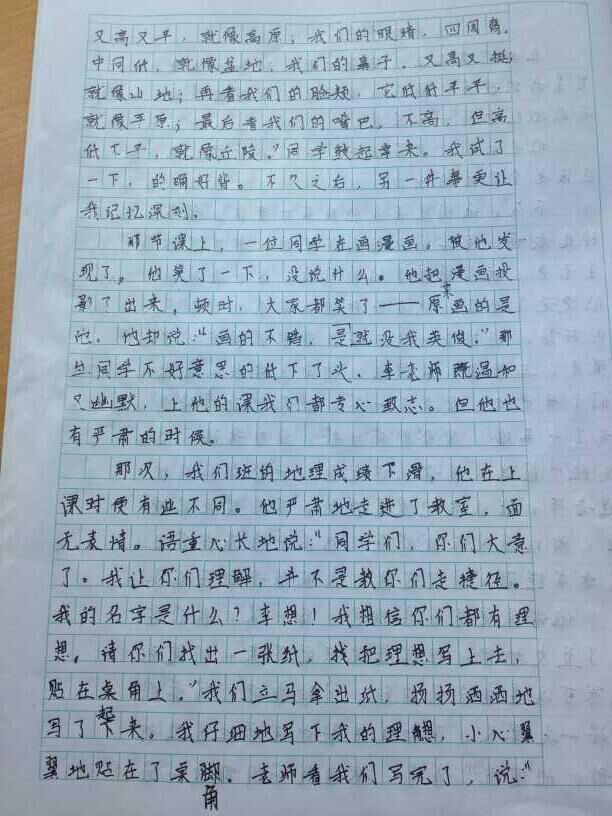 又高又平，就像高原；我们的眼睛，四周高，
中间低，就像盆地，我们的鼻子，又高又挺，
就像山地；再看我们的脸颊，它低低平平，
就像平原；最后看我们的嘴巴，不高，但高
低不平，就像丘陵。”同学鼓起掌来。我试了
一下，的确好背。不久之后，另一件事更让
我记忆深刻。
那节课上，一位同学在画漫画。被他发
现了，他笑了一下，没说什么。他把漫画投
影了出来，顿时，大家都笑了——原来画的是
他，他却说：“画的不错，是就没我英俊。”那
位同学不好意思的低下了头，李老师既温和
又幽默，上他的课我们都专心致志。但他也
有严肃的时候。
那次，我们班的地理成绩下滑，他在上
课时便有些不同。他严肃地走进了教室，面
无表情。语重心长地说：“同学们，你们大意
了。我让你们理解，并不是教你们走捷径。
我的名字是什么？李想！我相信你们都有理
想，请你们找出一张纸，找把理想写上去，
贴在桌角上，”我们立马拿出纸，扬扬洒洒地
写了起来，我仔细地写下我的理想，小心翼
翼地贴在了桌角。老师看我们写完了，说：“